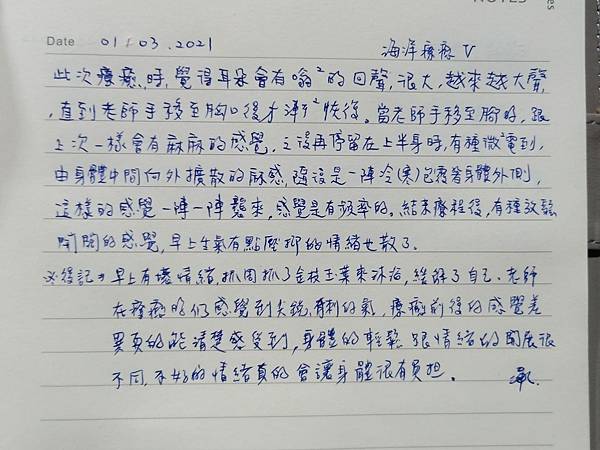 NOTES
Date 01 / 03 . 2021 海洋療癒 V
此次療癒時,覺得耳朵會有嗡²的回聲,很大,越來越大聲
,直到老師手移至胸口後才漸²恢復。當老師手移至腳時,跟
上次一樣會有麻麻的感覺,之後再停留在上半身時,有種微²電到,
由身體中間向外擴散的麻感,隨後是一陣冷(寒)包覆著身體外側,
這樣的感覺一陣一陣襲來,感覺是有頻率的。結束療程後,有種放鬆
開闊的感覺,早上生氣有點壓抑的情緒也散了.
後記→早上有壞情緒,抓周抓了金枝玉葉來沐浴,緩解了自己.老師
在療癒時仍感覺到尖銳,有刺的氣,療癒前後的感覺差
異真的能清楚感受到,身體的輕鬆跟情緒的開展很
不同,不好的情緒真的會讓身體很有負担。